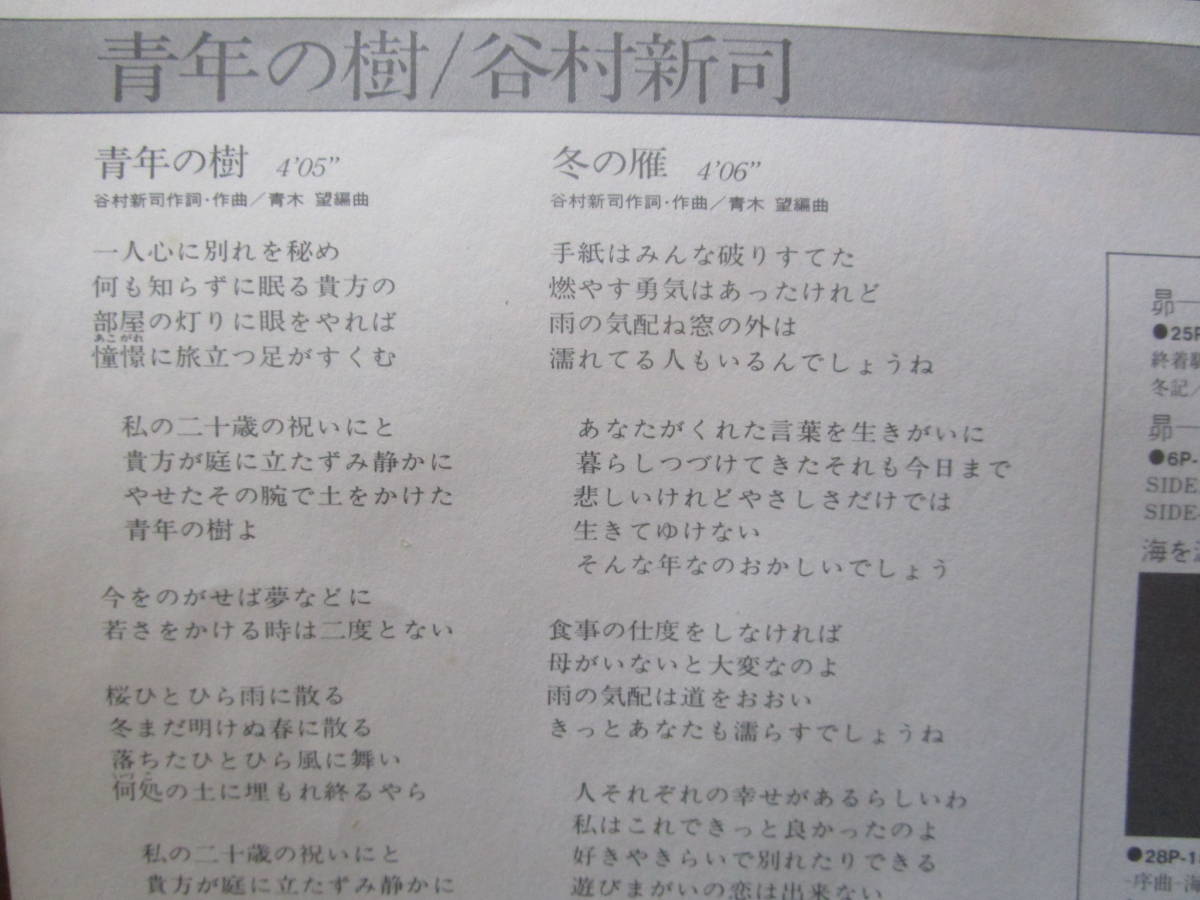 青年の樹/谷村新司
青年の樹 4'05"
谷村新司作詞・作曲／青木 望編曲
一人心に別れを秘め
何も知らずに眠る貴方の
部屋の灯りに眼をやれば
あこがれ
憧憬に旅立つ足がすくむ
私の二十歳の祝いにと
貴方が庭に立たずみ静かに
やせたその腕で土をかけた
青年の樹よ
今をのがせば夢などに
若さをかける時は二度とない
桜ひとひら雨に散る
冬まだ明けぬ春に散る
落ちたひとひら風に舞い
いづこ
何処の土に埋もれ終るやら
私の二十歳の祝いにと
貴方が庭に立たずみ静かに
冬の雁 4'06"
谷村新司作詞・作曲／青木 望編曲
手紙はみんな破りすてた
燃やす勇気はあったけれど
雨の気配ね窓の外は
濡れてる人もいるんでしょうね
あなたがくれた言葉を生きがいに
暮らしつづけてきたそれも今日まで
悲しいけれどやさしさだけでは
生きてゆけない
そんな年なのおかしいでしょう
食事の仕度をしなければ
母がいないと大変なのよ
雨の気配は道をおおい
きっとあなたも濡らすでしょうね
人それぞれの幸せがあるらしいわ
私はこれできっと良かったのよ
好きやきらいで別れたりできる
遊びまがいの恋は出来ない
昴—
●25P
終着駅
冬記／
昴—
●6P-
SIDE
SIDE-
海を
●28P-1
-序曲-海